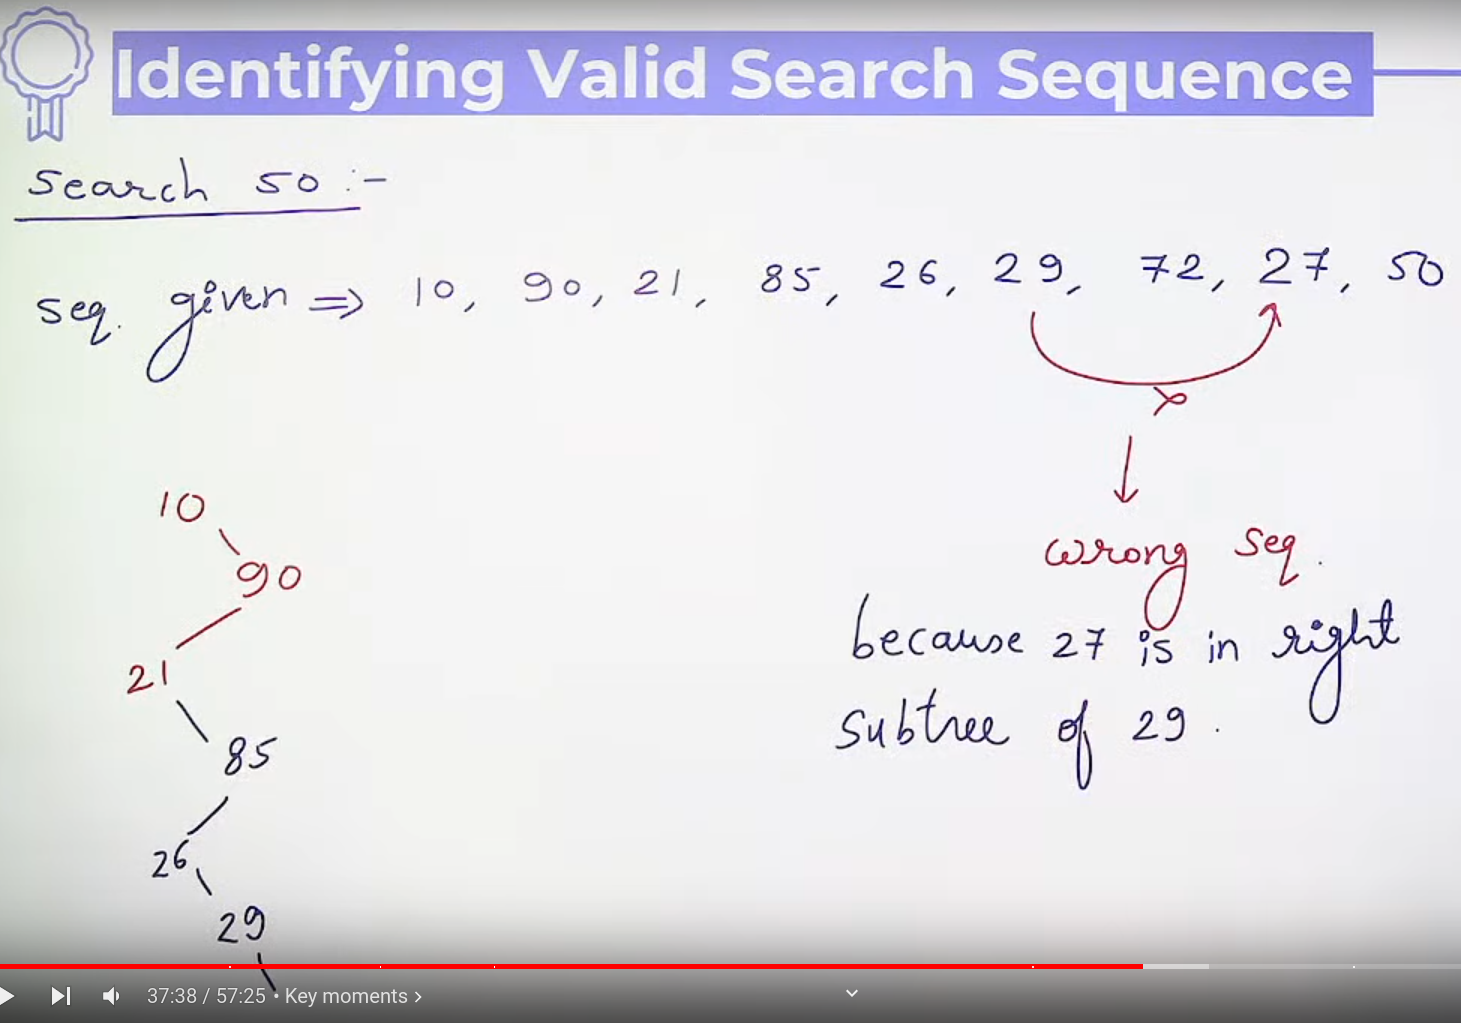 Identifying Valid Search Sequence
Search 50 :-
seq. given ⇒ 10, 90, 21, 85, 26, 29, 72, 27, 50
10
90
21
85
26
29
wrong seq.
because 27 is in right
subtree of 29.
37:38 / 57:25 • Key moments >